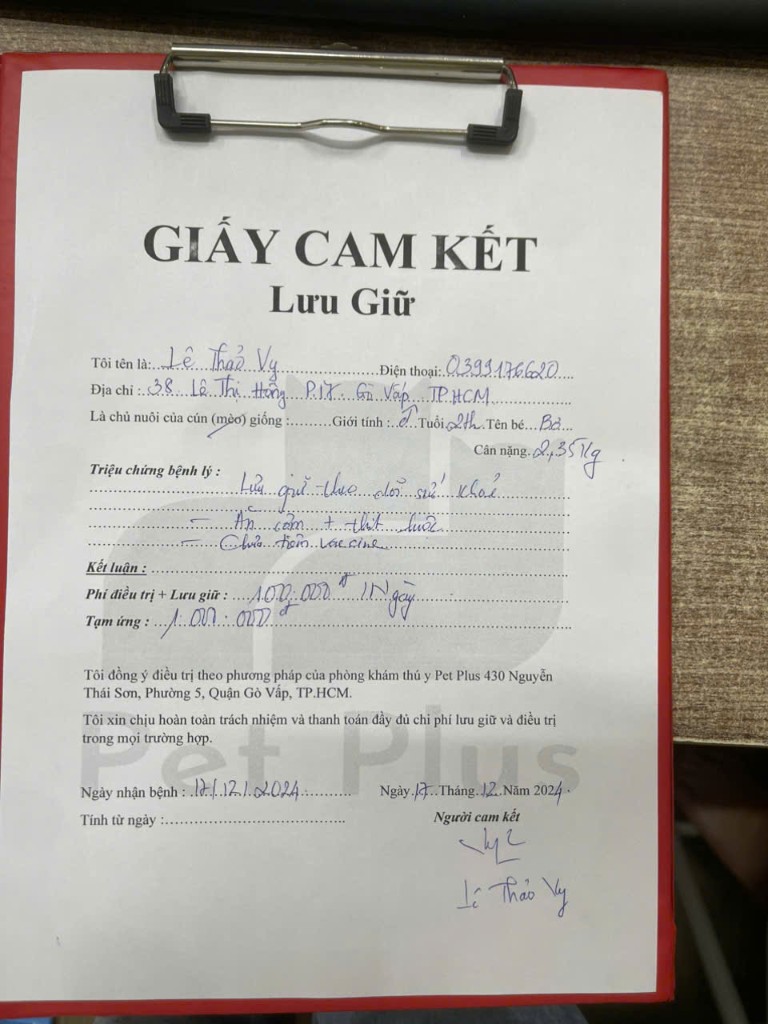 GIẤY CAM KẾT
Lưu Giữ
Tôi tên là: Lê Thảo Vy Điện thoại: 0399176620
Địa chỉ: 38 Lê Thị Hồng P.17 Gò Vấp TP.HCM
Là chủ nuôi của cún (mèo) giống: Giới tính: ♂ Tuổi 2th Tên bé
Cân nặng. 2,35 Kg
Triệu chứng bệnh lý :
Lưu giữ theo dõi sức khoẻ
- Ăn cơm + thịt luộc
- Chưa tiêm vaccine
Kết luận :
Phí điều trị + Lưu giữ : 100.000đ /Ngày
Tạm ứng : 1.000.000đ
Tôi đồng ý điều trị theo phương pháp của phòng khám thú y Pet Plus 430 Nguyễn
Thái Sơn, Phường 5, Quận Gò Vấp, TP.HCM.
Tôi xin chịu hoàn toàn trách nhiệm và thanh toán đầy đủ chi phí lưu giữ và điều trị
trong mọi trường hợp.
Pet Plus
Ngày nhận bệnh : 17/12/2024 Ngày 17 Tháng 12 Năm 2024
Tính từ ngày : Người cam kết
Lê Thảo Vy